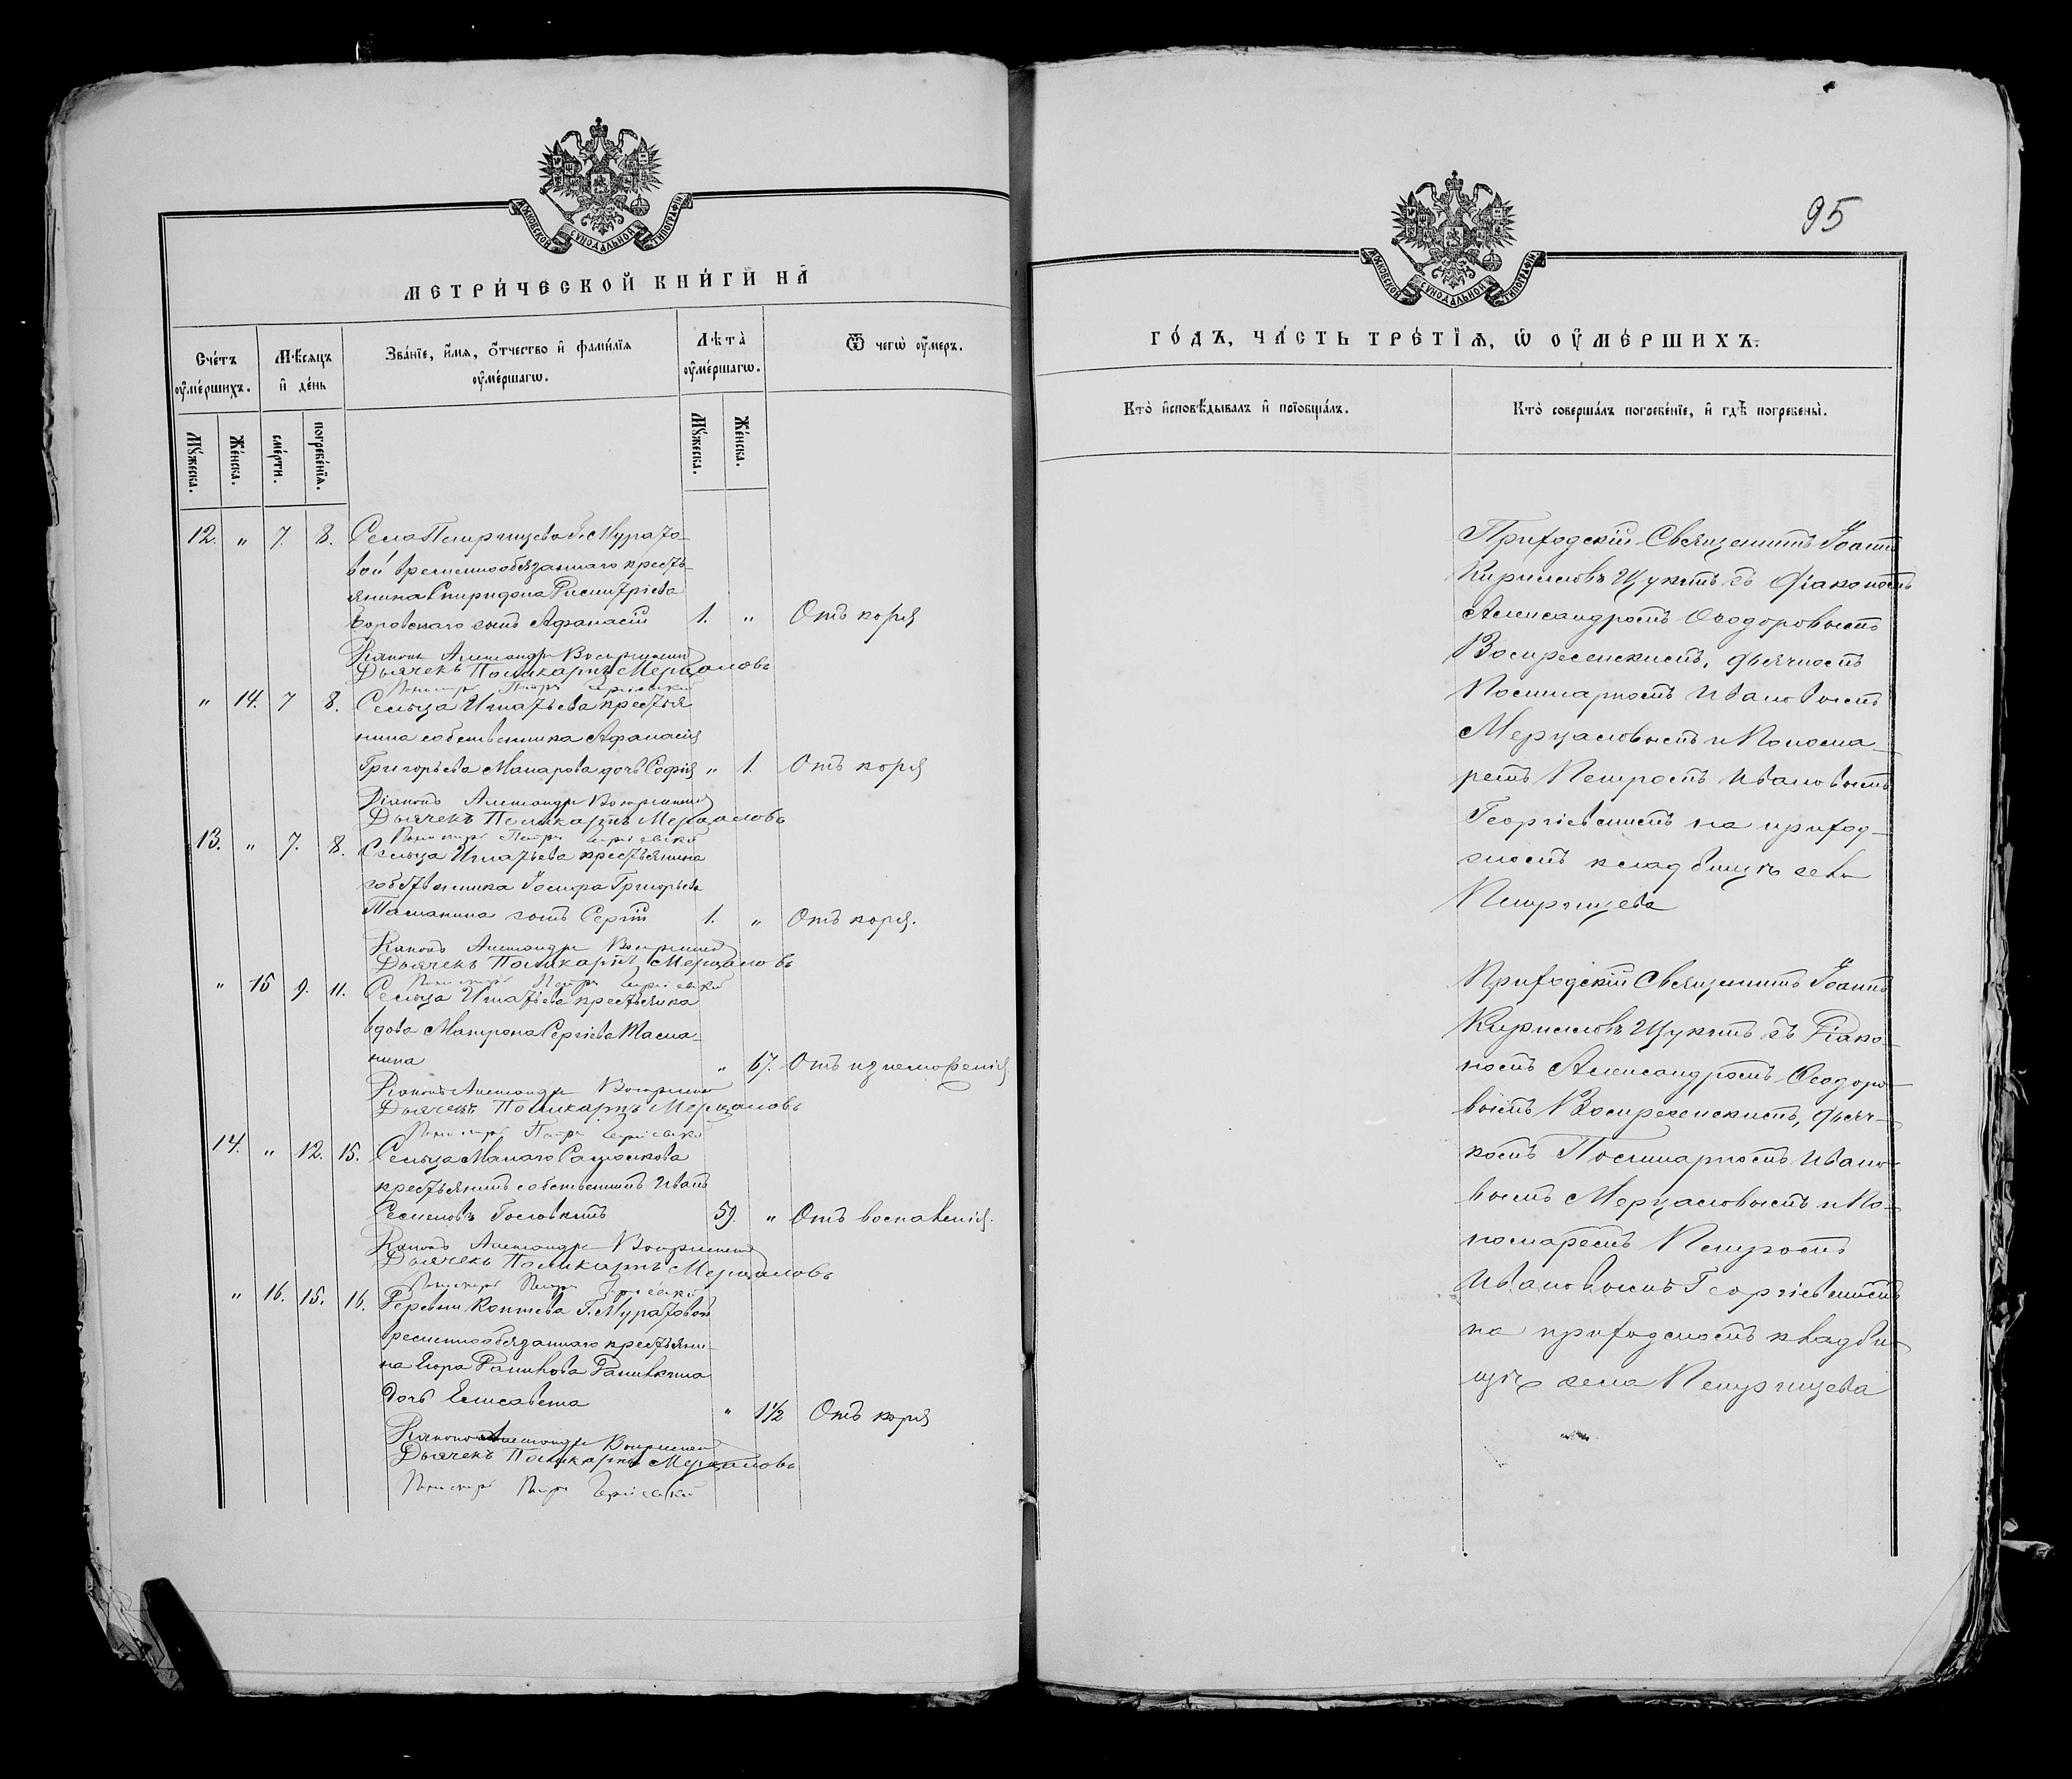 МОСКОВСКОЙ СѴНОДАЛЬНОЙ ТИПОГРАФІИ
МЕТРИ́ЧЕСКОЙ КНИ́ГИ НА̀
Сче́тъ ѹ҆ме́ршихъ.
Мѣ́сяцъ и҆ де́нь
Зва́нїе, и҆́мѧ, ѻ҆́тчество и҆ фами́лїѧ ѹ҆ме́ршагѡ.
Лѣта̀ ѹ҆ме́ршагѡ.
Ѿ чегѡ̀ ѹ҆́меръ.
Мꙋ́жеска.
Же́нска.
сме́рти.
погребе́нїѧ.
Мꙋ́жеска.
Же́нска.
12. " 7. 8. Села Петрищева Г. Мурато-
вой временнообязаннаго кресть-
янина Спиридона Димитріева
Боровскаго сынъ Афанасій 1. " Отъ коря
Діаконъ Александръ Воскресенскій
Дьячекъ Поликарпъ Мерцаловъ
Пономарь Петръ Георгіевскій
" 14. 7 8. Сельца Игнатьева крестья
нина собственника Афанасія
Григорьева Макарова дочь Софія " 1. Отъ коря
Діаконъ Александръ Воскресенскій
Дьячекъ Поликарпъ Мерцаловъ
Пономарь Петръ Георгіевскій
13. " 7. 8. Сельца Игнатьева крестьянина
собственника Іосифа Григорьева
сынъ Сергій 1. " Отъ коря.
Діаконъ Александръ Воскресенскій
Дьячекъ Поликарпъ Мерцаловъ
Пономарь Петръ Георгіевскій
" 15 9. 11. Сельца Игнатьева крестьянка
вдова Матрона Сергіева
" 67. Отъ изнеможенія
Діаконъ Александръ Воскресенскій
Дьячекъ Поликарпъ Мерцаловъ
Пономарь Петръ Георгіевскій
14. " 12. 15. Сельца Малаго
крестьянинъ собственникъ Иванъ
Семеновъ 59. " Отъ воспаленія.
Діаконъ Александръ Воскресенскій
Дьячекъ Поликарпъ Мерцаловъ
Пономарь Петръ Георгіевскій
" 16. 15. 16. Деревни Коптева Г. Муратовой
временнообязаннаго крестьяни-
на Егора Данилова Данилкина
дочь Елисавета " 1 1/2 Отъ коря
Діаконъ Александръ Воскресенскій
Дьячекъ Поликарпъ Мерцаловъ
Пономарь Петръ Георгіевскій
95
МОСКОВСКОЙ СѴНОДАЛЬНОЙ ТИПОГРАФІИ
ГО́ДЪ, ЧА́СТЬ ТРЕ́ТЇѦ, Ѡ҆ ОУ҆МЕ́РШИХЪ.
Кто̀ и҆сповѣ́дывалъ и҆ прїобща́лъ.
Кто̀ соверша́лъ погребе́нїе, и҆ гдѣ̀ погребены̀.
Приходскій Священникъ Іоаннъ
Кирилловъ Щукинъ съ діакономъ
Александромъ Ѳеодоровымъ
Воскресенскимъ, дьячкомъ
Поликарпомъ Ивановымъ
Мерцаловымъ и Понома-
ремъ Петромъ Ивановымъ
Георгіевскимъ на приход-
скомъ кладбищѣ села
Петрищева
Приходскій Священникъ Іоаннъ
Кирилловъ Щукинъ съ Діако-
номъ Александромъ Ѳеодоро-
вымъ Воскресенскимъ, дьяч-
комъ Поликарпомъ Ивано-
вымъ Мерцаловымъ и По-
номаремъ Петромъ
Ивановымъ Георгіевскимъ
на приходскомъ кладби-
щѣ села Петрищева